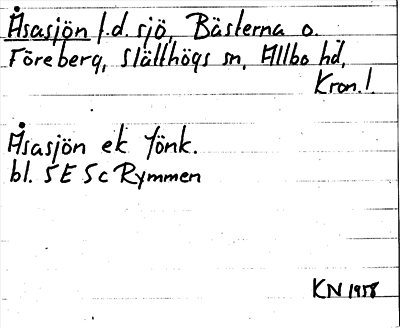 Åsasjön f.d. sjö, Bästerna o.
Föreberg, Slätthögs sn, Allbo hd,
Kron.l.
Åsasjön ek Jönk.
bl. 5E 5c Rymmen
KN 1958